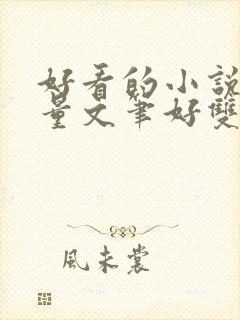 好看的小說
量文筆好雙
風未裳